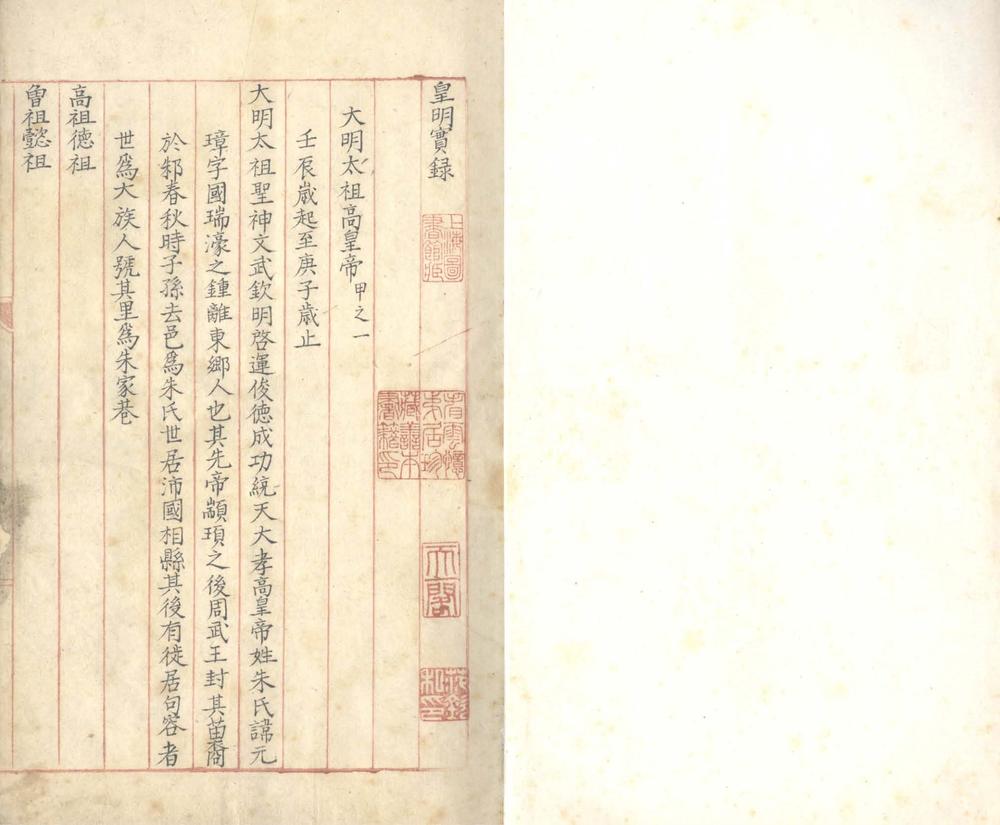 皇明實錄
大明太祖高皇帝甲之一
壬辰歲起至庚子歲止
大明太祖聖神文武欽明啓運俊德成功統天大孝高皇帝姓朱氏諱元
璋字國瑞濠之鍾離東鄉人也其先帝顓頊之後周武王封其苗裔
於邾春秋時子孫去邑爲朱氏世居沛國相縣其後有徙居句容者
世爲大族人號其里爲朱家巷
高祖德祖
曾祖懿祖
上海圖書館藏